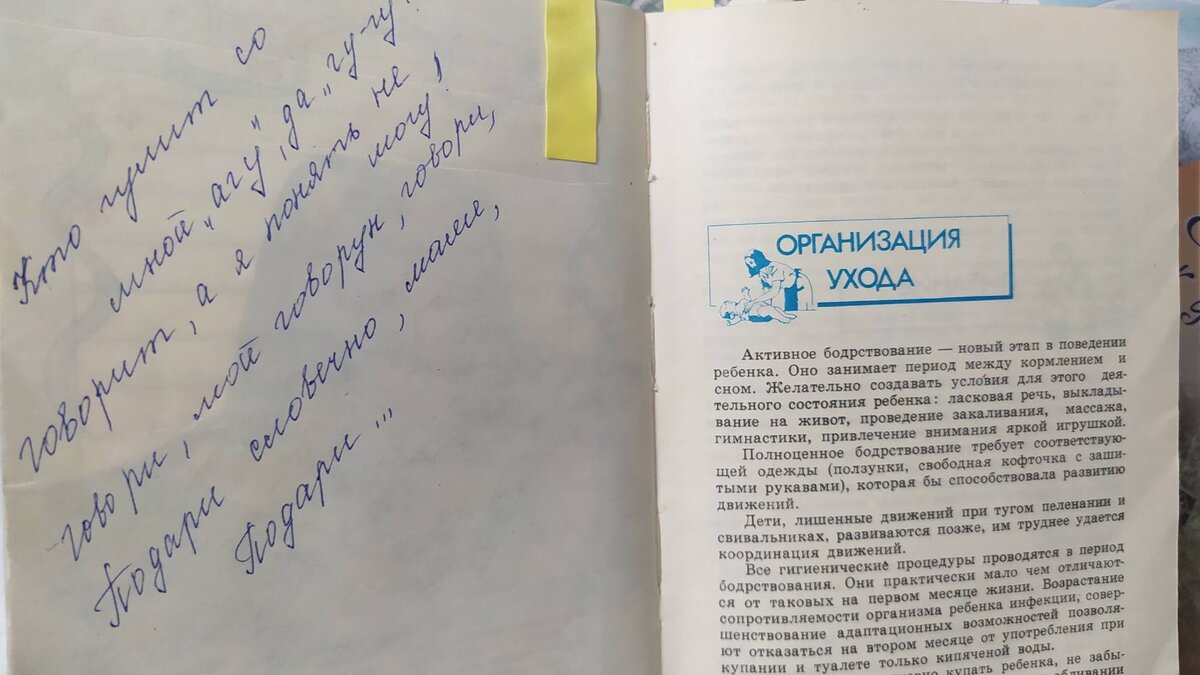 Кто гулит со
мной „агу", да „гу-гу"
говорит, а я понять не
могу!
говори, мой говорун, говори,
Подари словечно, маме,
Подари...
ОРГАНИЗАЦИЯ
УХОДА
Активное бодрствование — новый этап в поведении
ребенка. Оно занимает период между кормлением и
сном. Желательно создавать условия для этого дея-
тельного состояния ребенка: ласковая речь, выклады-
вание на живот, проведение закаливания, массажа,
гимнастики, привлечение внимания яркой игрушкой.
Полноценное бодрствование требует соответствую-
щей одежды (ползунки, свободная кофточка с заши-
тыми рукавами), которая бы способствовала развитию
движений.
Дети, лишенные движений при тугом пеленании и
свивальниках, развиваются позже, им труднее удается
координация движений.
Все гигиенические процедуры проводятся в период
бодрствования. Они практически мало чем отличают-
ся от таковых на первом месяце жизни. Возрастание
сопротивляемости организма ребенка инфекции, совер-
шенствование адаптационных возможностей позволя-
ют отказаться на втором месяце от употребления при
купании и туалете только кипяченой воды.
купать ребенка, не забы-